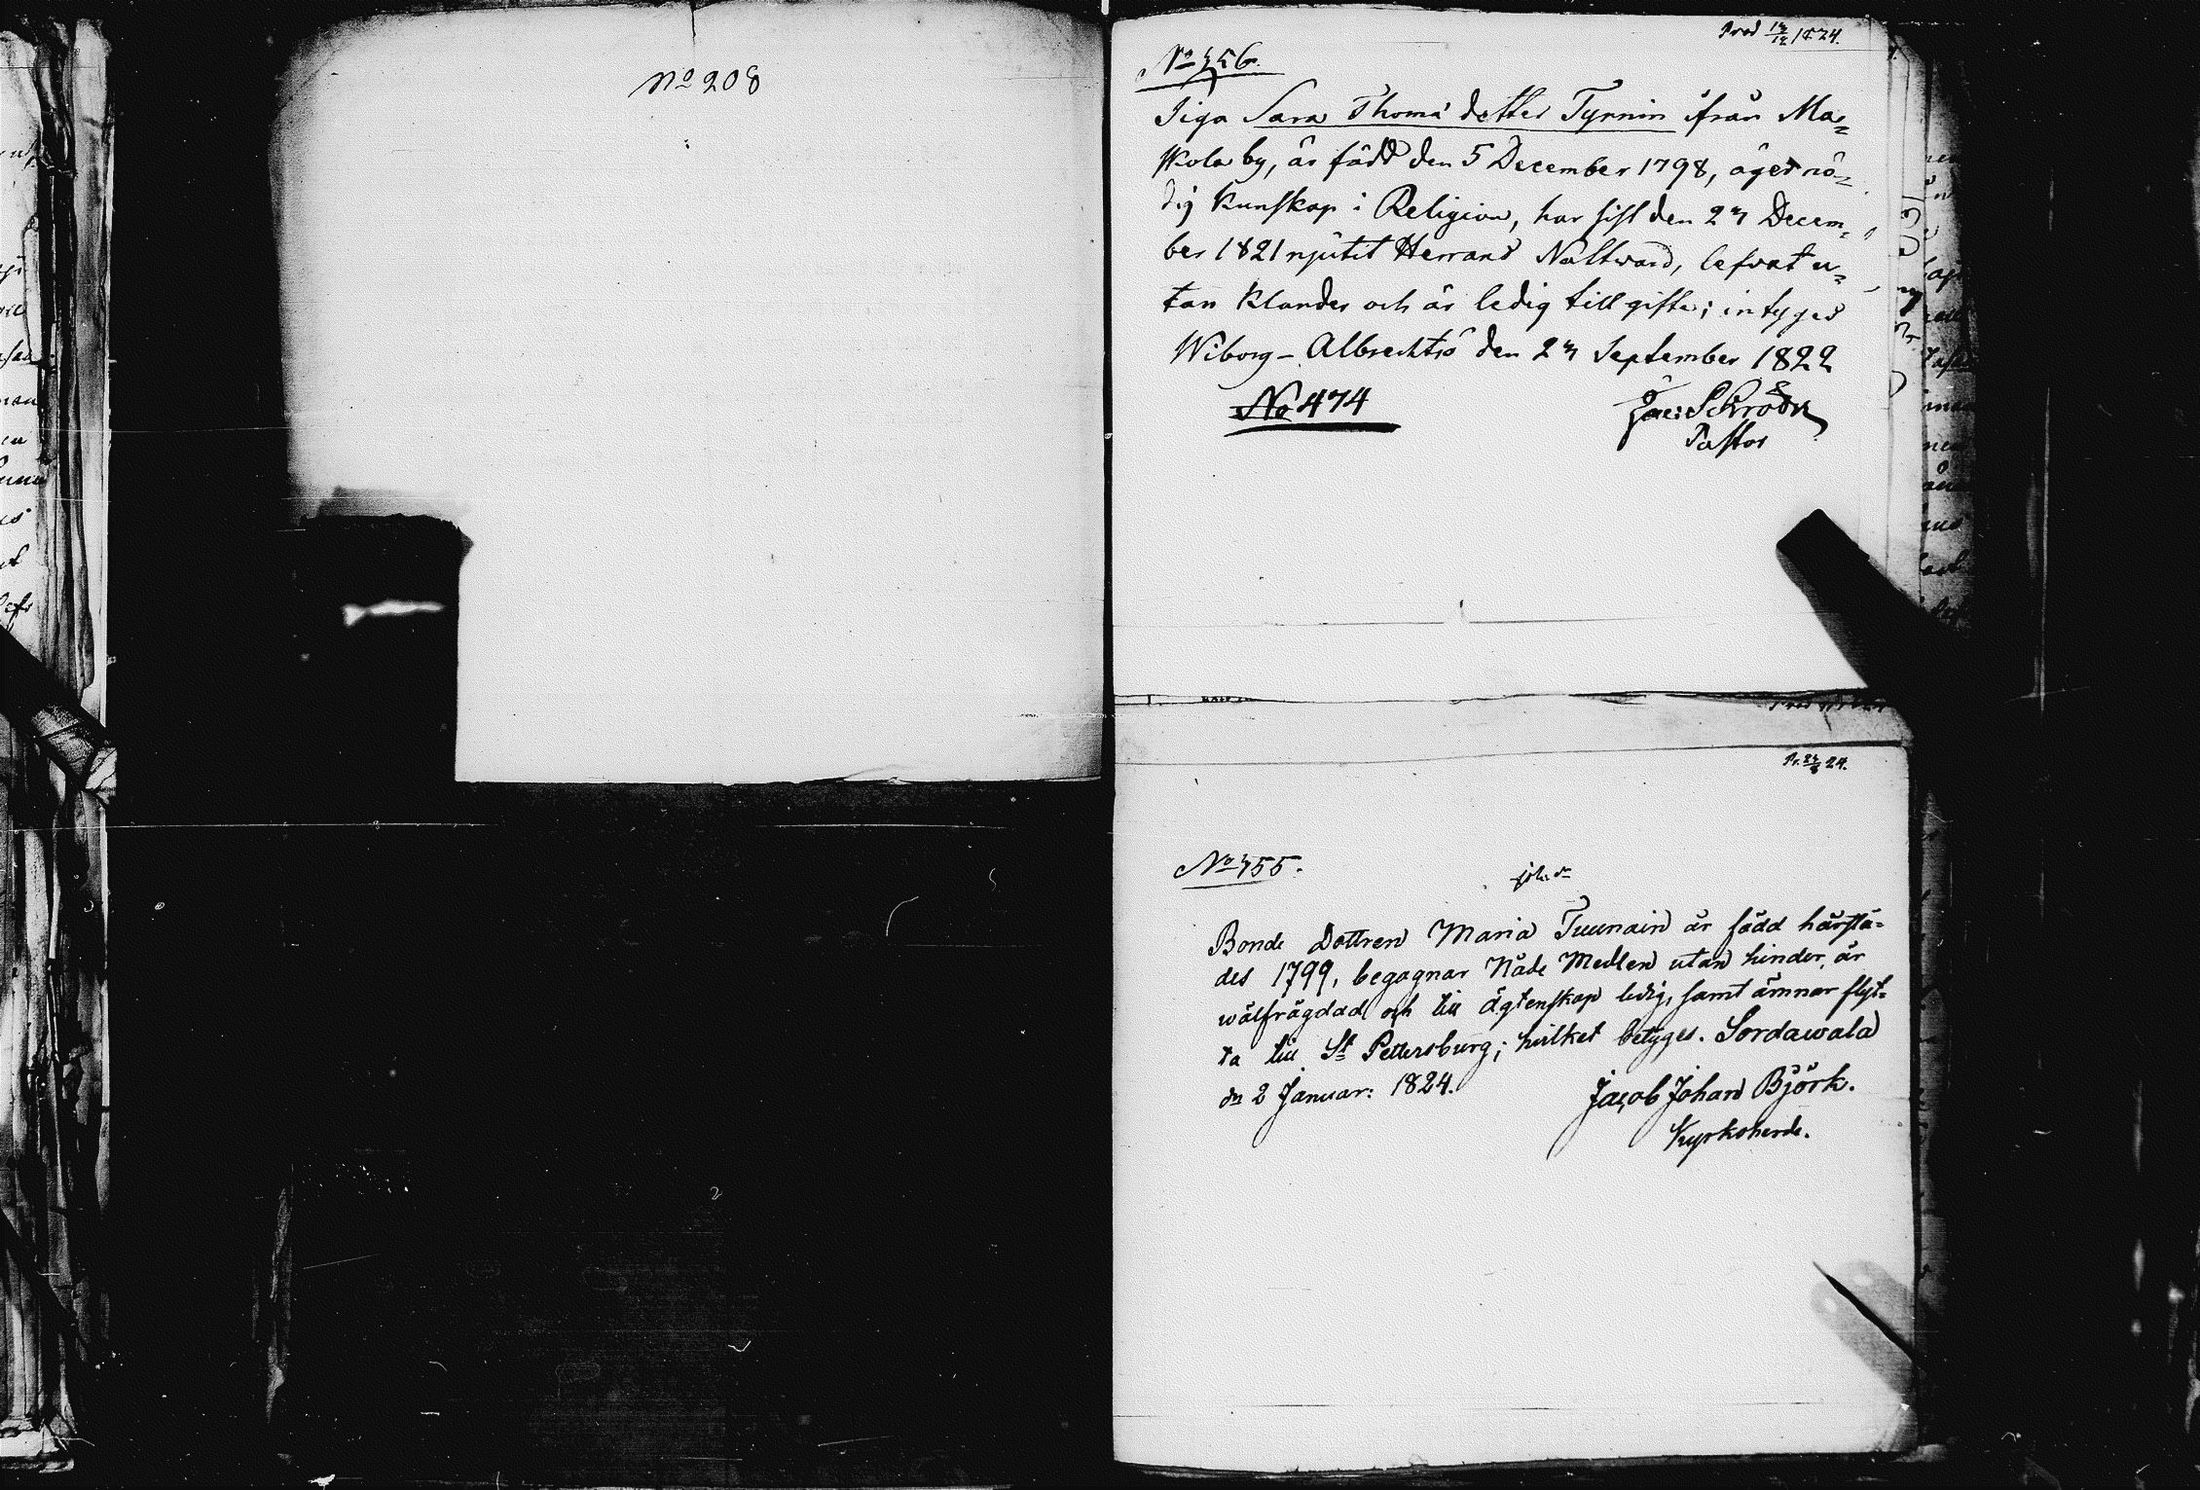 No 208
Prod 13/12 1824.
No 456.
Piga Sara Thomä dotter Tyrnin ifrån Ma=
skola by, är född den 5 December 1798, äger nö=
dig Kunskap i Religion, har sist den 27 Decem=
ber 1821 njutit Herrans Nattward, lefvat u=
tan Klander och är ledig till gifte; intyges
Wiborg - den 27 September 1822
No 474
Jac: Schröder
Pastor
Pr. 24.
No 455.
Bonde Dottren Maria Tuunain är född härstä=
des 1799, begagnar Nåde Medlen utan hinder, är
wälfrägdad och till ägtenskap ledig, samt ämnar flyt=
ta till St Pettersburg; hvilket betyges. Sordawala
dn 2 Januar: 1824.
Jacob Johan Björk.
Kyrkoherde.